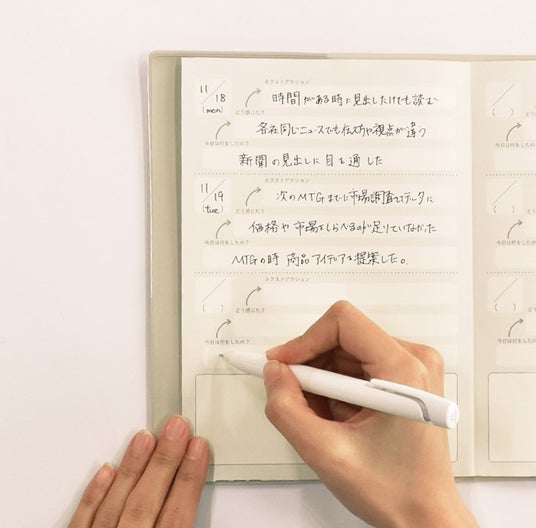 11/18
(mon)
ネクストアクション
時間がある時に見出しだけでも読む
どう感じた?
各社同じニュースでも伝え方や視点が違う
今日は何をしたの?
新聞の見出しに目を通した
11/19
(tue)
ネクストアクション
次のMTGまでに市場調査を
どう感じた?
価格や市場をしらべるのが足りていなかった
今日は何をしたの?
MTGの時 商品アイデアを提案した。
ネクストアクション
( )
どう感じた?
今日は何をしたの?
( )
今日は何をしたの?
( )
今日は何をしたの?
( )
今日は何をしたの?